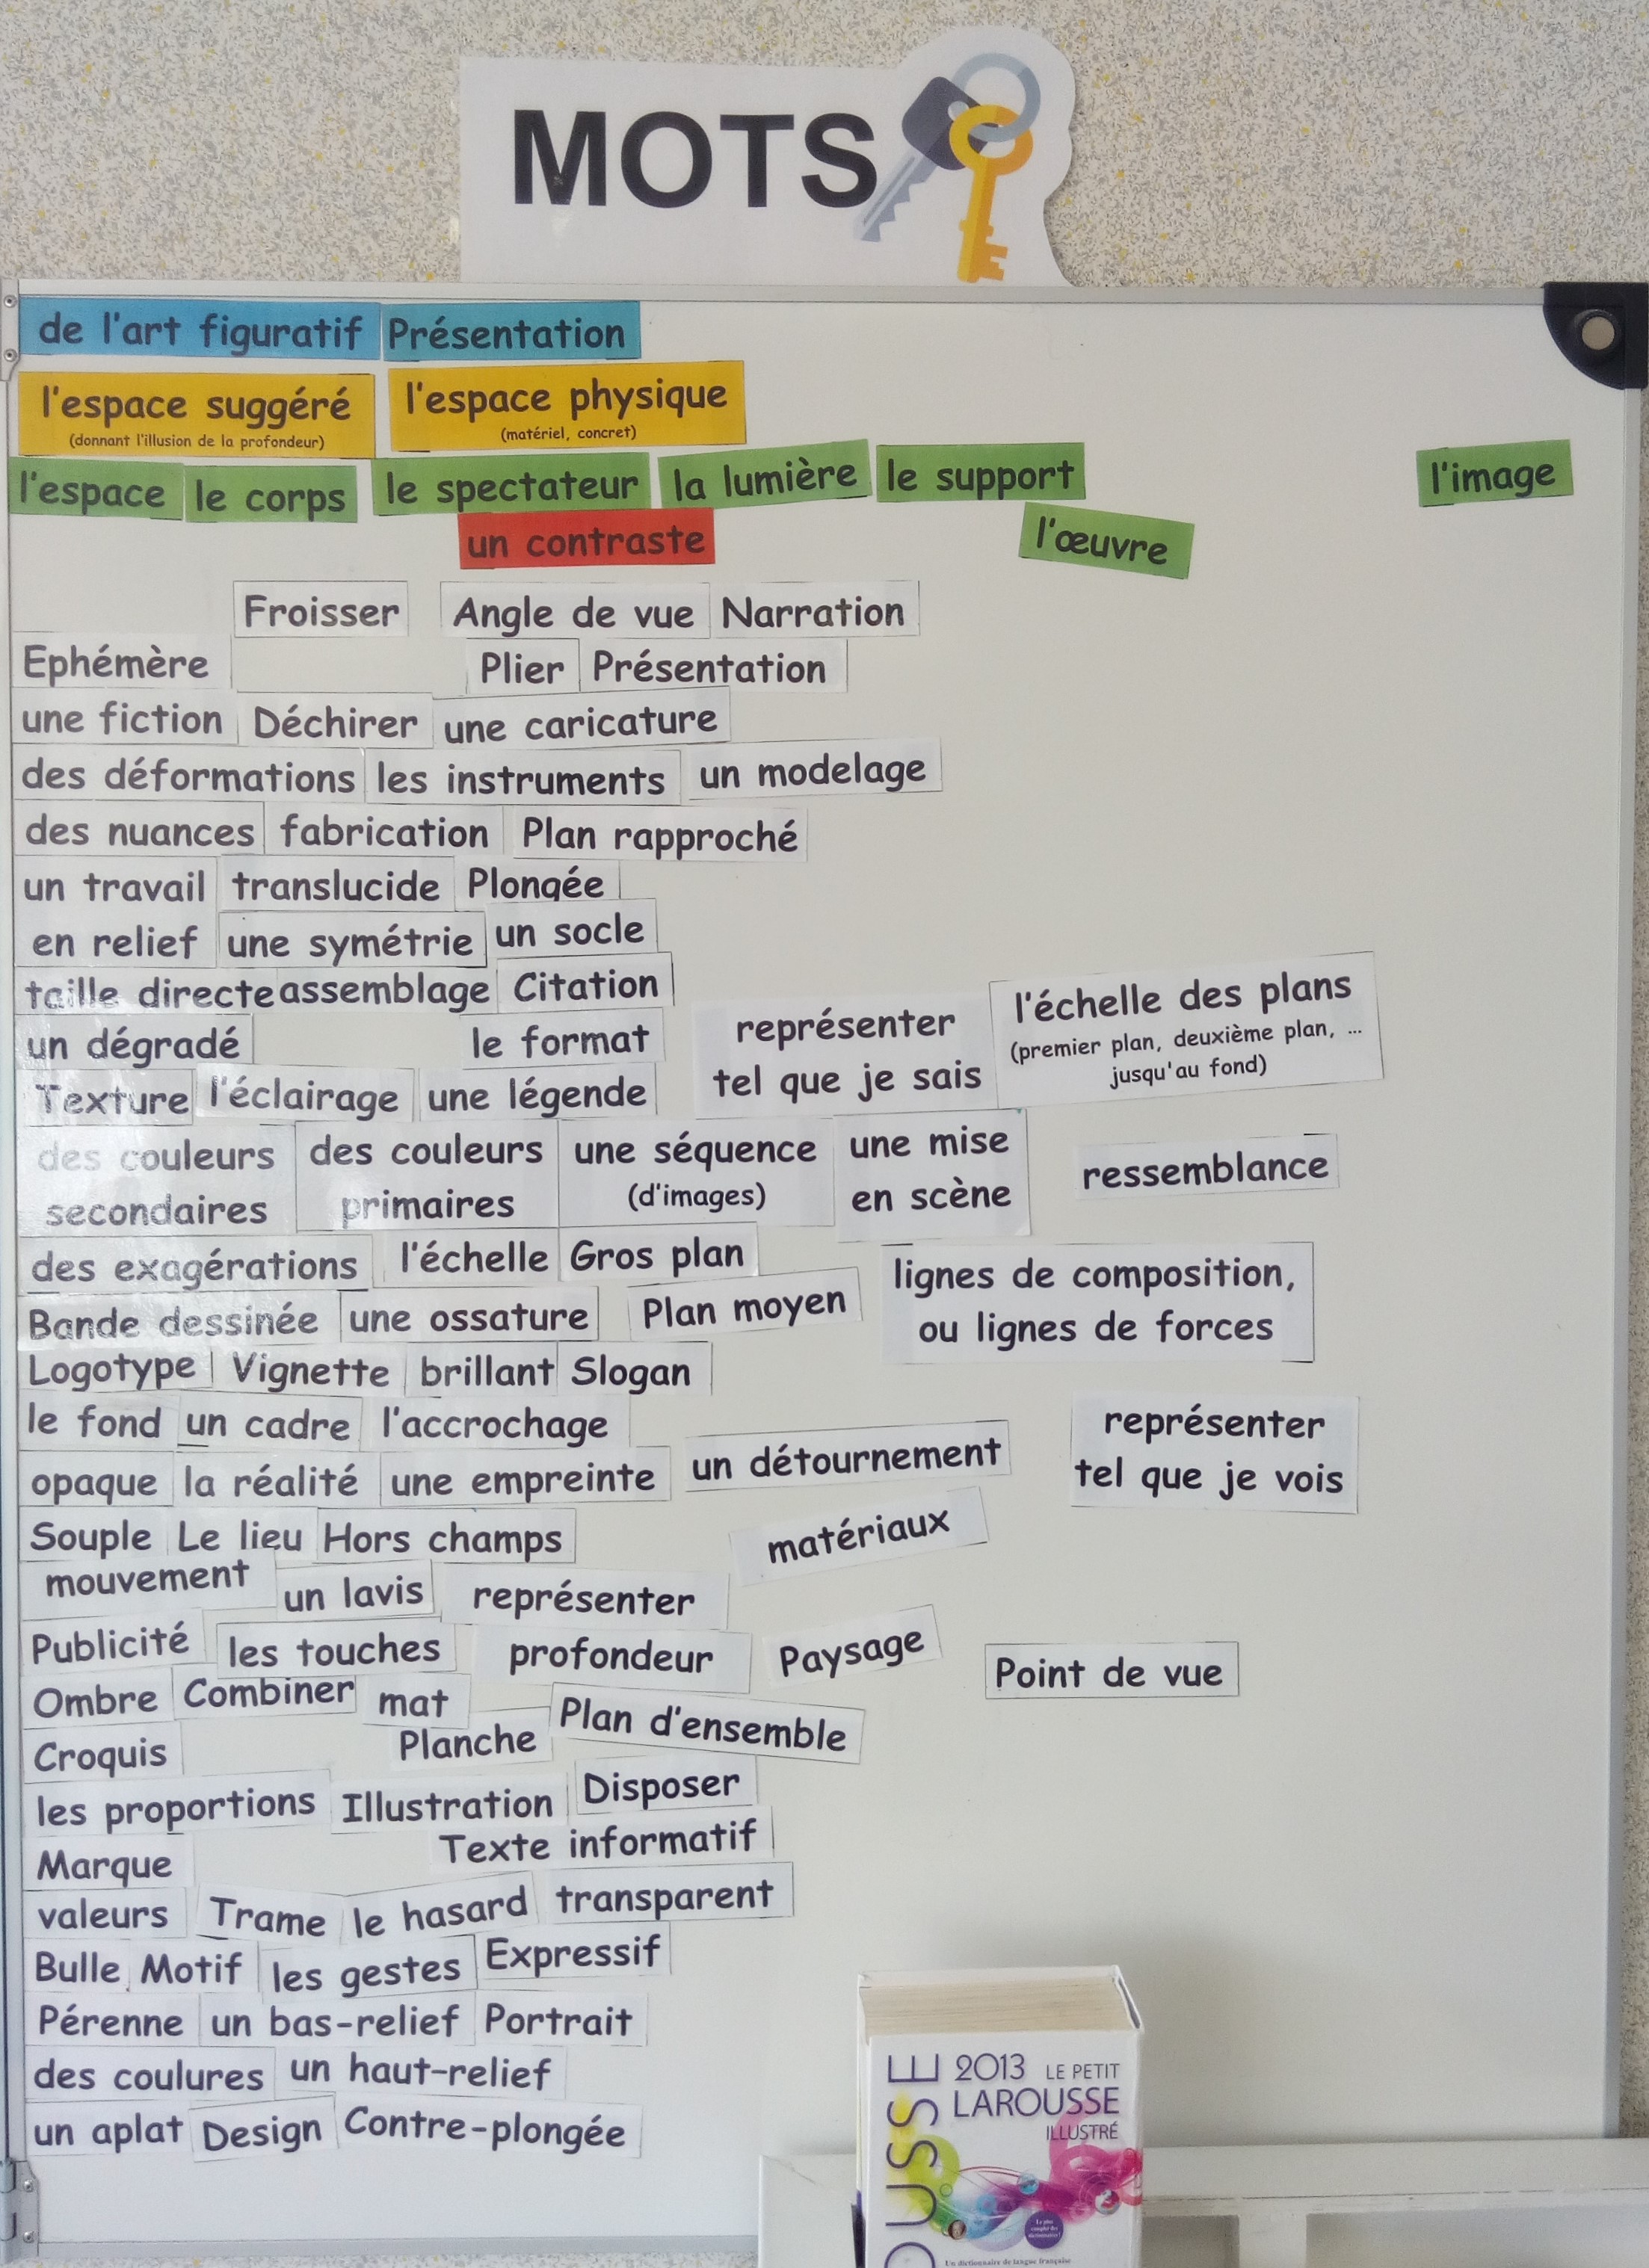 MOTS
de l'art figuratif Présentation
l'espace suggéré l'espace physique
(donnant l'illusion de la profondeur) (matériel, concret)
l'espace le corps le spectateur la lumière le support l'image
un contraste l'œuvre
Froisser Angle de vue Narration
Ephémère Plier Présentation
une fiction Déchirer une caricature
des déformations les instruments un modelage
des nuances fabrication Plan rapproché
un travail translucide Plongée
en relief une symétrie un socle
taille directe assemblage Citation
un dégradé le format
représenter
tel que je sais
l'échelle des plans
(premier plan, deuxième plan, ...
jusqu'au fond)
Texture l'éclairage une légende
des couleurs
secondaires
des couleurs
primaires
une séquence
(d'images)
une mise
en scène
ressemblance
des exagérations l'échelle Gros plan
lignes de composition,
ou lignes de forces
Bande dessinée une ossature Plan moyen
Logotype Vignette brillant Slogan
le fond un cadre l'accrochage
représenter
tel que je vois
opaque la réalité une empreinte un détournement
Souple Le lieu Hors champs matériaux
mouvement un lavis représenter
Publicité les touches profondeur Paysage Point de vue
Ombre Combiner mat Plan d'ensemble
Croquis Planche
les proportions Illustration Disposer
Marque Texte informatif
valeurs Trame le hasard transparent
Bulle Motif les gestes Expressif
Pérenne un bas-relief Portrait
des coulures un haut-relief
un aplat Design Contre-plongée
OUSSE
2013 LE PETIT
LAROUSSE
ILLUSTRÉ
Un dictionnaire de langue française